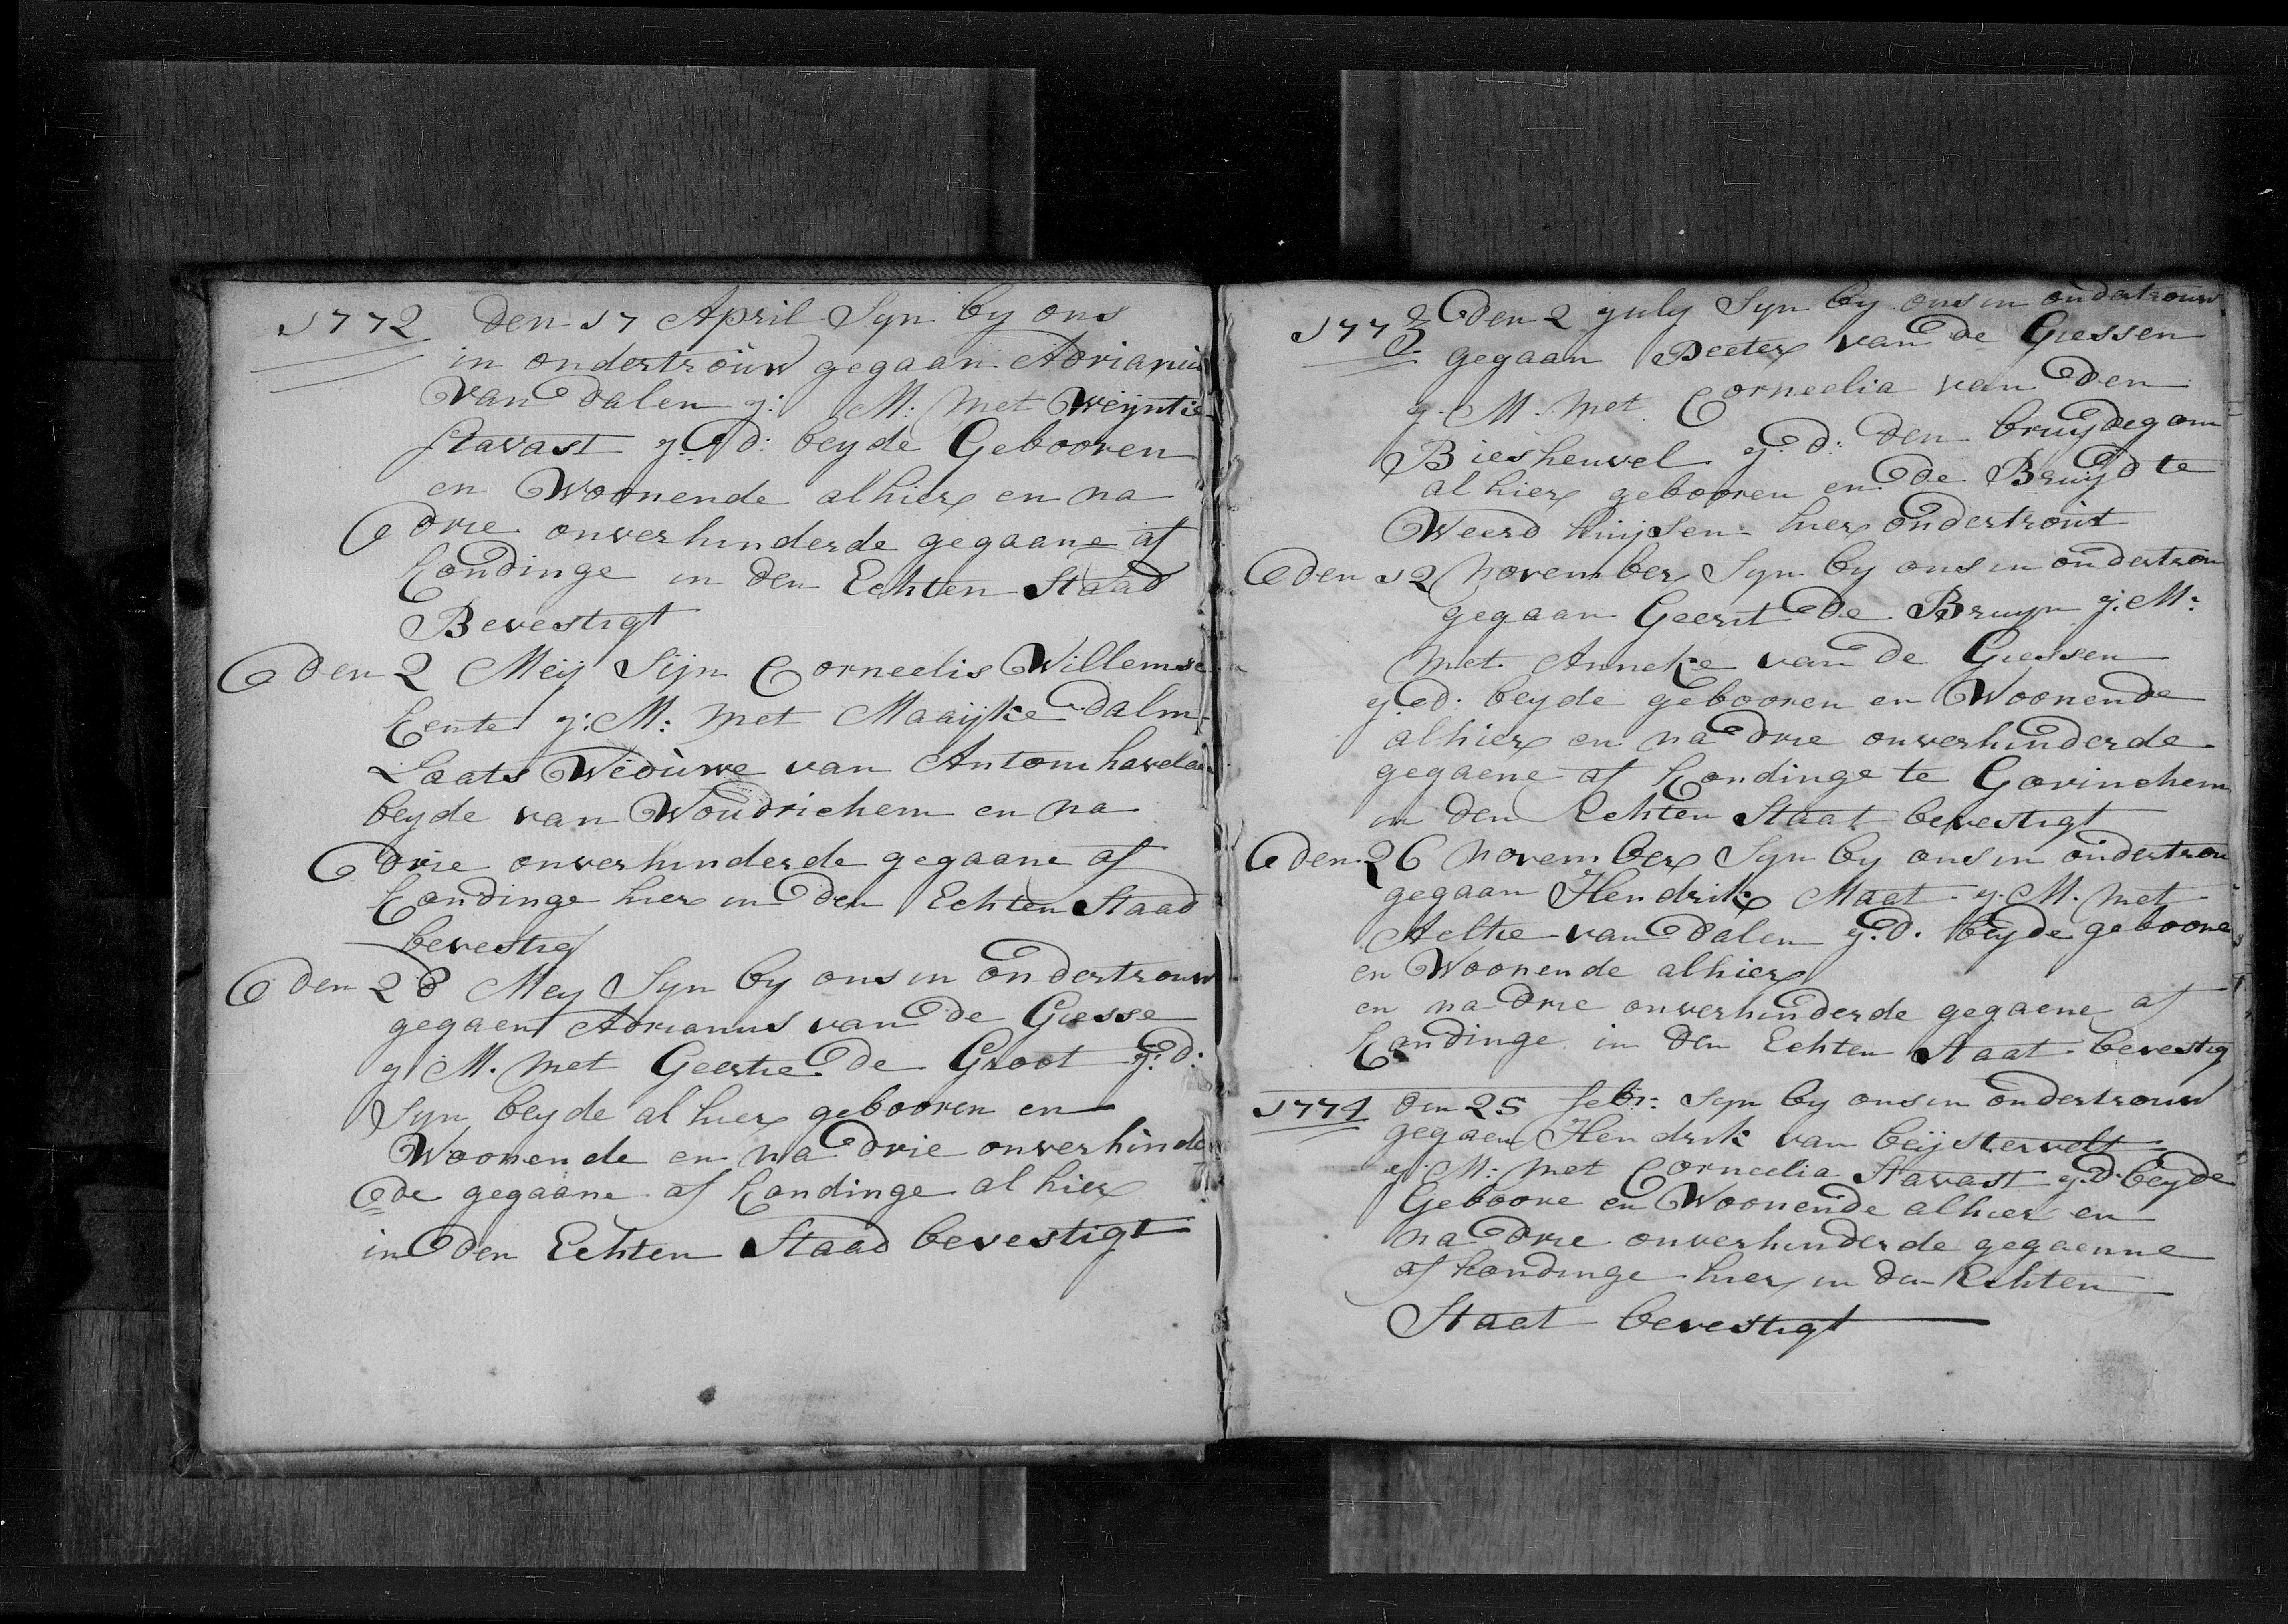 1772 den 17 April Syn by ons
in ondertrouw gegaan Adrianus
van dalen j: M: met Weijntie
stavast j: d: beyde Gebooren
en Woonende alhier en na
drie onverhinderde gegaane af
kondinge in den Echten Staad
Bevestigt
den 2 Meij Sijn Corneelis Willemse
Eente j: M: met Maaijke dalm
Laats Wedùwe van Antoni havelaar
beyde van Woudrichem en na
drie onverhinderde gegaane af
kondinge hier in den Echten Staad
bevestig
den 28 Mey Syn by ons in ondertrouw
gegaen Adrianus van de Giesse
j M. met Geertie de Groot j: d:
Syn beyde al hier gebooren en
Woonende en na drie onverhinder
de gegaane af kondinge al hier
in den Echten Staad bevestigt
1773 den 2 july Syn by ons in ondertrouw
gegaan Peeter van de Giessen
j. M. met Corneelia van den
Biesheuvel j: d: den bruijdegom
al hier gebooren en de Bruijd te
Weerd huijsen hier ondertrout
den 12 november Syn by ons in ondertrou
gegaan Geerit de Bruyn j. M:
met Anneke van de Giessen
j: d: beyde gebooren en Woonende
alhier en na drie onverhinderde
gegaene af kondinge te Gorinchem
in den Echten Staat bevestigt
den 26 november Syn by ons in ondertrou
gegaan Hendrik Maat j. M. met
Aeltie van dalen j: d. beyde geboore
en Woonende alhier
en na drie onverhinderde gegaene af
kondinge in den Echten Staat bevestig
1774 den 25 febr: Syn by ons in ondertrouw
gegaen Hendrik van beijstervelt
j: M: met Corneelia Stavast j. d. beyde
Geboore en Woonende alhier en
na drie onverhinderde gegaenne
af kondinge hier in den Echten
Staat bevestigt